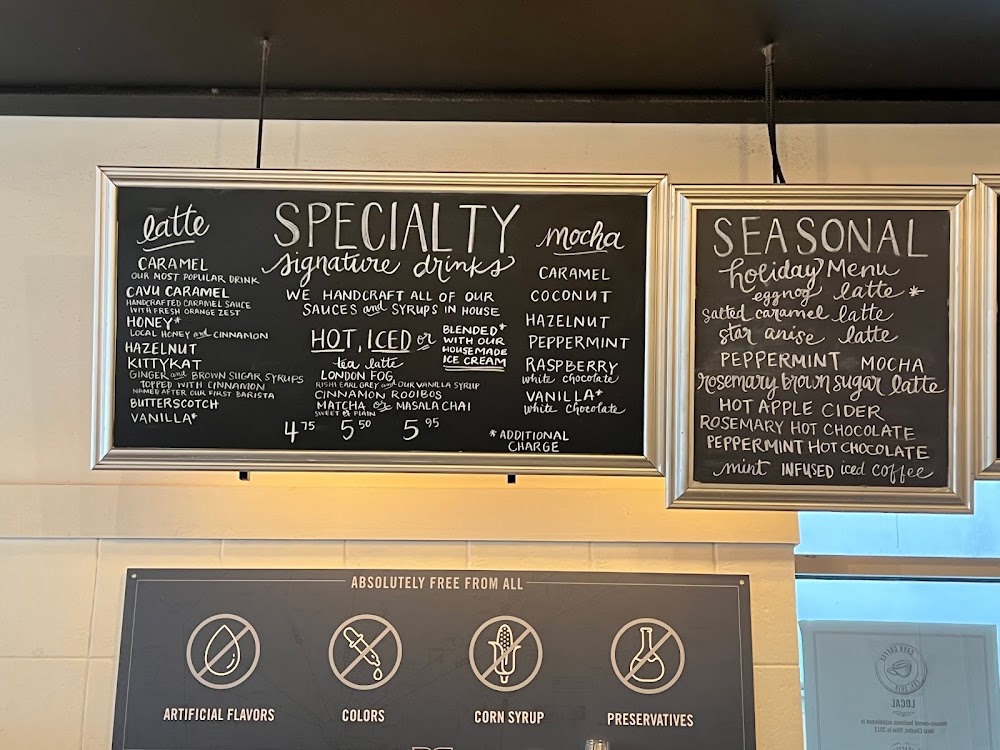 latte
CARAMEL
OUR MOST POPULAR DRINK
CAVU CARAMEL
HANDCRAFTED CARAMEL SAUCE
WITH FRESH ORANGE ZEST
HONEY*
LOCAL HONEY and CINNAMON
HAZELNUT
KITTYKAT
GINGER and BROWN SUGAR SYRUPS
TOPPED WITH CINNAMON
NAMED AFTER OUR FIRST BARISTA
BUTTERSCOTCH
VANILLA*
SPECIALTY
signature drinks
WE HANDCRAFT ALL OF OUR
SAUCES and SYRUPS IN HOUSE
HOT, ICED or
BLENDED*
WITH OUR
HOUSEMADE
ICE CREAM
tea latte
LONDON FOG
RISHI EARL GREY and OUR VANILLA SYRUP
CINNAMON ROOIBOS
MATCHA or MASALA CHAI
SWEET or PLAIN
4 75 5 50 5 95
mocha
CARAMEL
COCONUT
HAZELNUT
PEPPERMINT
RASPBERRY
white chocolate
VANILLA*
white chocolate
*ADDITIONAL
CHARGE
SEASONAL
holiday Menu
eggnog latte *
salted caramel latte
star anise latte
PEPPERMINT MOCHA
rosemary brown sugar latte
HOT APPLE CIDER
ROSEMARY HOT CHOCOLATE
PEPPERMINT HOT CHOCOLATE
mint INFUSED iced coffee
ABSOLUTELY FREE FROM ALL
ARTIFICIAL FLAVORS
COLORS
CORN SYRUP
PRESERVATIVES
LOCAL